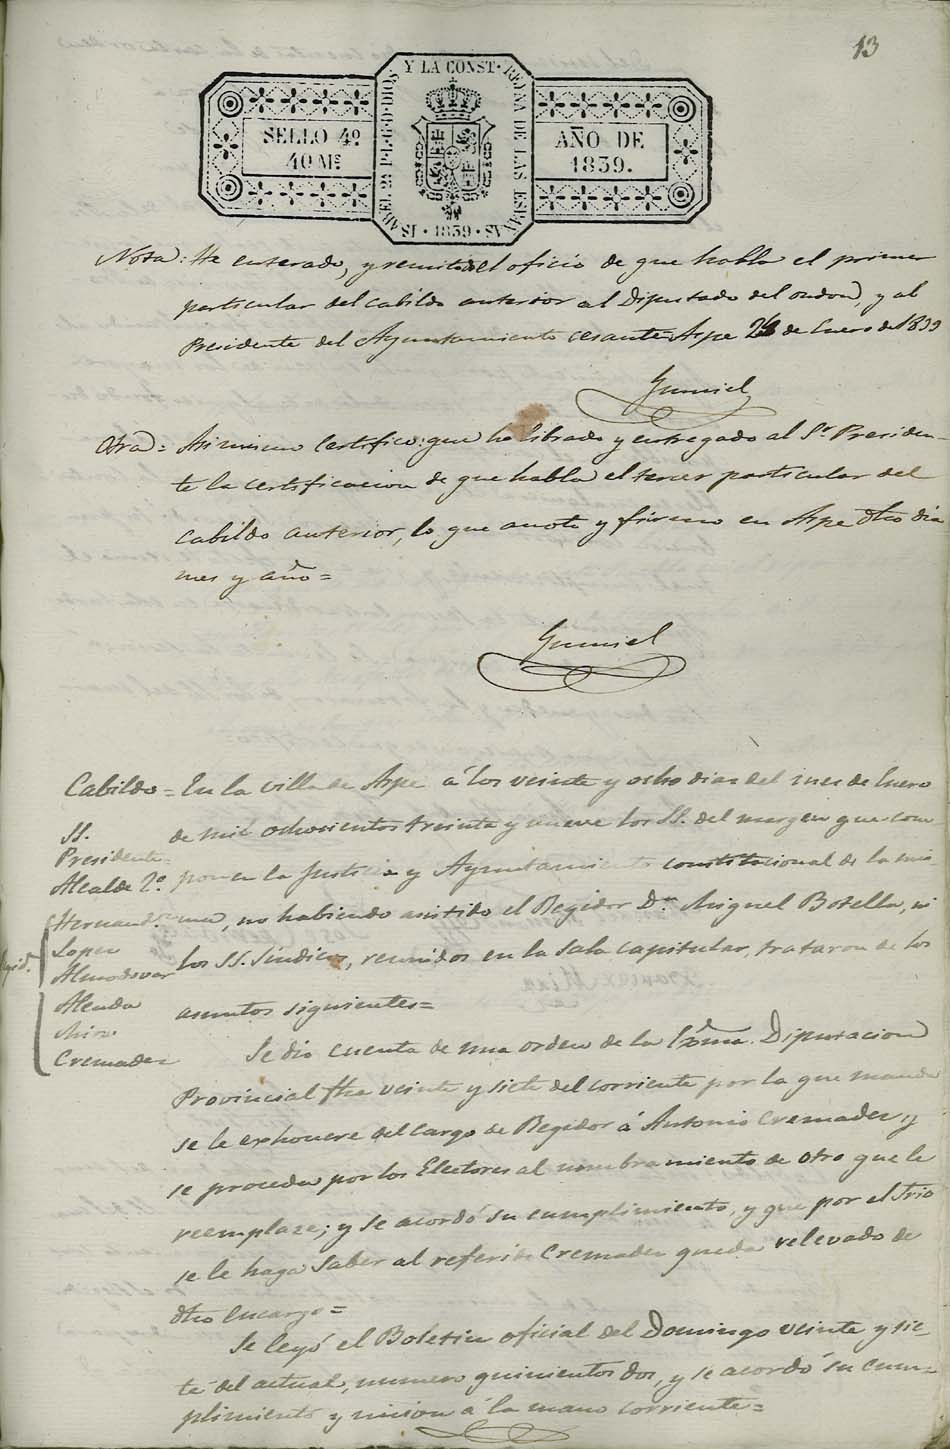 13
Y LA CONST. REYNA DE LAS ESPAÑAS
ISABEL 2ª P. L. G. D. DIOS
SELLO 4º
40 Ms
AÑO DE
1839.
1839
Nota: He enterado, y remitido el oficio de que habla el primer
particular del cabildo anterior al Diputado del ondon, y al
Presidente del Ayuntamiento cesante= Aspe 28 de Enero de 1839
Gumiel
Otra= Asi mismo Certifico: que he librado y entregado al Sr. Presiden-
te la certificacion de que habla el tercer particular del
cabildo anterior, lo que anoto y firmo en Aspe dho dia
mes y año=
Gumiel
Cabildo= En la villa de Aspe á los veinte y ocho dias del mes de Enero
SS.
de mil ochocientos treinta y nueve los SS. del margen que com-
Presidente=
Alcalde 2º
ponen la Justicia y Ayuntamiento constitucional de la mis
Hernandz
ma, no habiendo asistido el Regidor Dn. Miguel Botella, ni
Regids
Lopez
los SS. Sindicos, reunidos en la sala capitular, trataron de los
Almodovar
asuntos siguientes=
Alenda
Mira
Cremades
Se dió cuenta de una orden de la Exma. Diputacion
Provincial fha veinte y siete del corriente por la que manda
se le exhonere del cargo de Regidor á Antonio Cremades, y
se proceda por los Electores al nombramiento de otro que le
reemplaze; y se acordó su cumplimiento, y que por el Srio
se le haga saber al referido Cremades queda relevado de
dho encargo=
Se leyó el Boletin oficial del Domingo veinte y sie-
te del actual, numero quinientos dos, y se acordó su cum-
plimiento y union á la mano corriente=